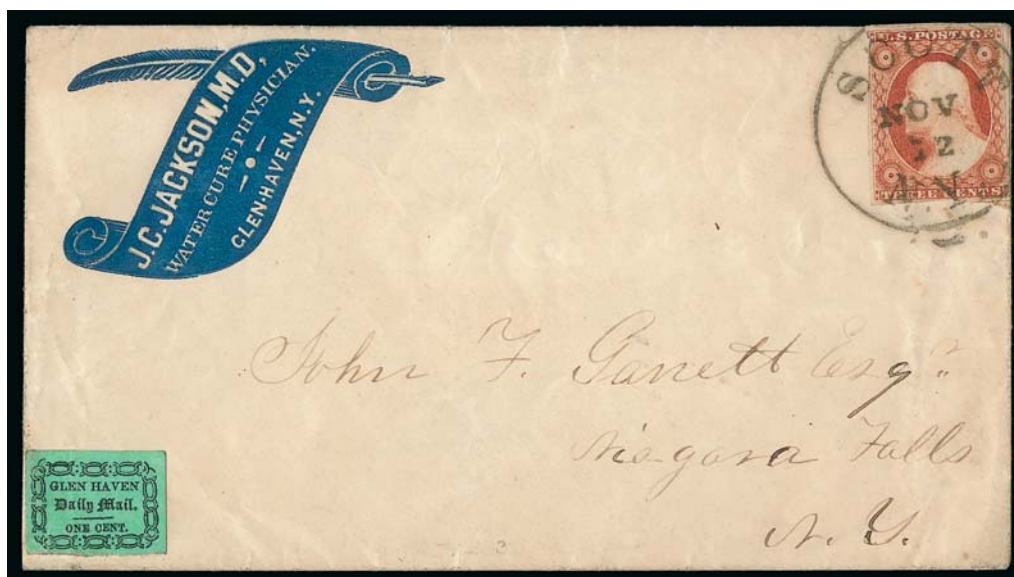 J.C. JACKSON, M.D,
WATER CURE PHYSICIAN.
GLEN-HAVEN, N.Y.
U.S. POSTAGE
THREE CENTS
SCOTT
NOV
12
N.Y.
John F. Garrett Esqr.
Niagara Falls
N. Y.
GLEN HAVEN
Daily Mail.
ONE CENT.